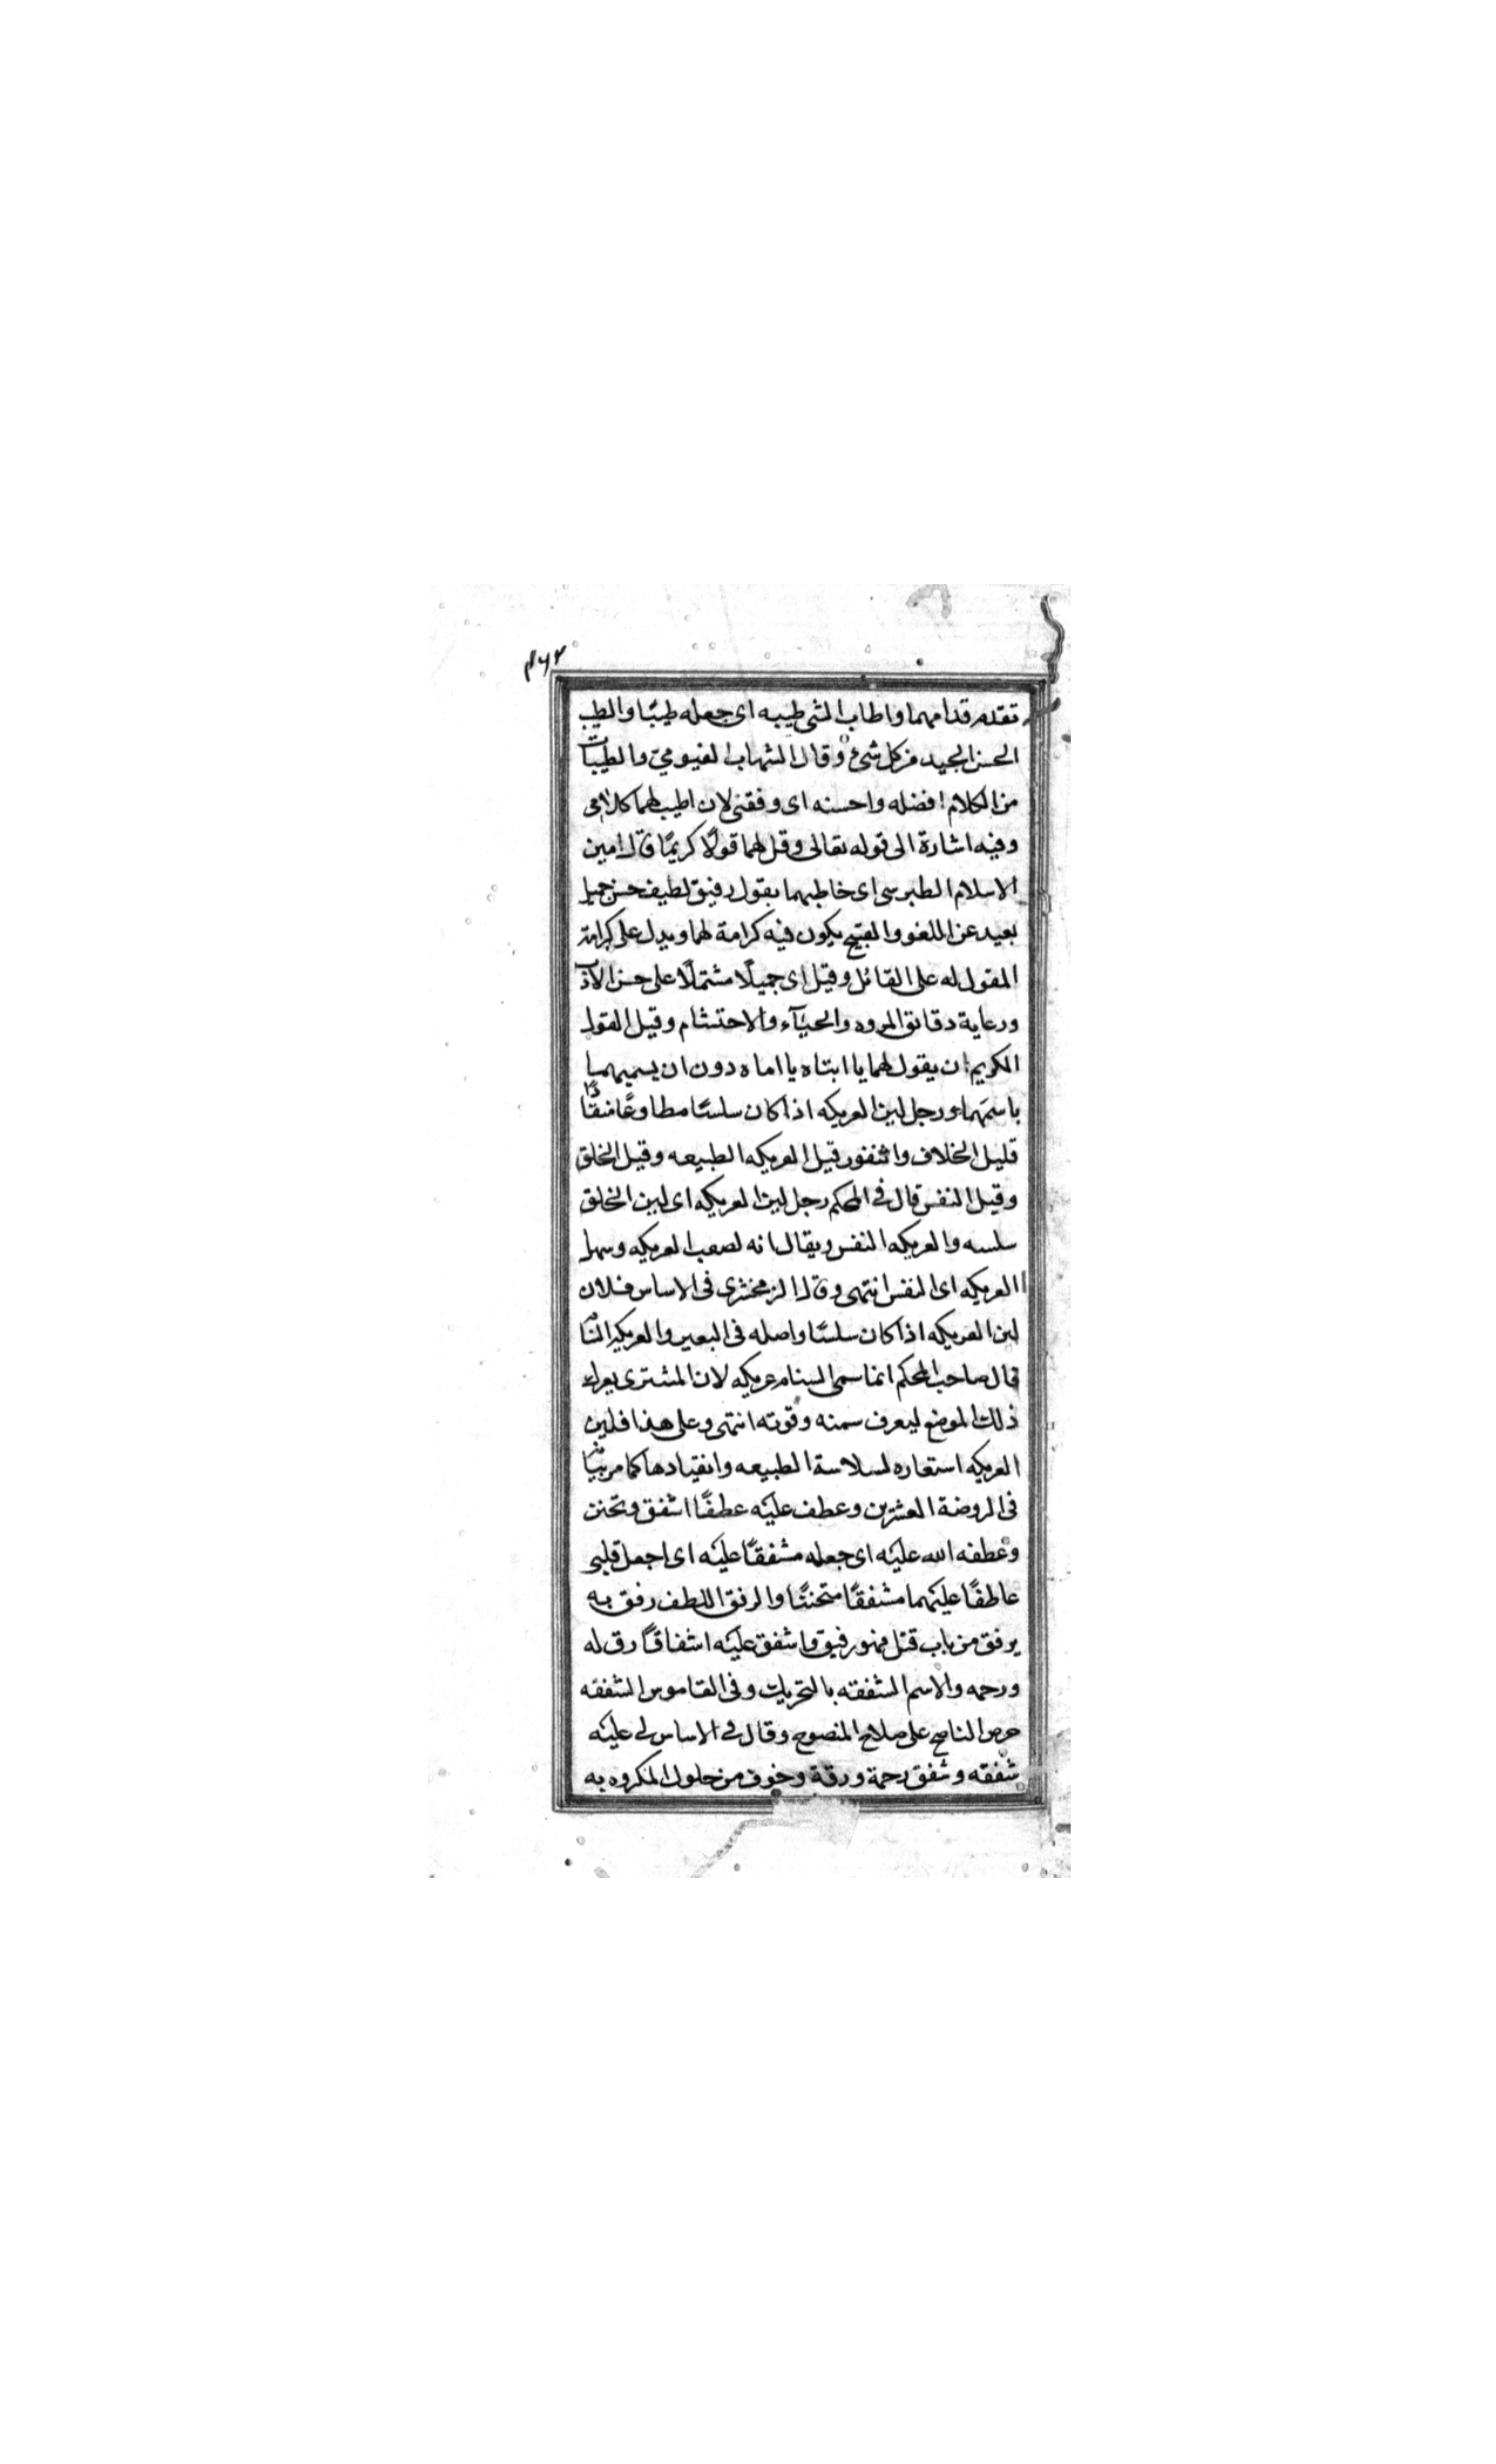 تقدم قدامهما واطاب الشى طيبه اى جعله طيبًا والطيب
الحسن الجيد من كل شئ وقال الشهاب الفيومى والطيبات
من الكلام افضله واحسنه اى وفقنى لان اطيب لهما كلامى
وفيه اشارة الى قوله تعالى وقل لهما قولًا كريمًا قال امين
الاسلام الطبرسى اى خاطبهما بقول رفيق لطيف حسن جميل
بعيد عن اللغو والقبيح يكون فيه كرامة لهما ويدل على كرامة
المقول له على القائل وقيل اى جميلًا مشتملًا على حسن الادب
ورعاية دقايق المروه والحيآء والاحتشام وقيل القول
الكريم ان يقول لهما يا ابتاه يا اماه دون ان يسميهما
باسمهما ورجل لين العريكه اذا كان سلسًا مطاوعًا منقادًا
قليل الخلاف والنفور قيل العريكه الطبيعه وقيل الخلق
وقيل النفس قال فى المحكم رجل لين العريكه اى لين الخلق
سلسه والعريكه النفس ويقال انه لصعب العريكه وسهل
العريكه اى النفس انتهى وقال الزمخشرى فى الاساس فلان
لين العريكه اذا كان سلسًا واصله فى البعير والعريكه السنام
قال صاحب المحكم انما سمى السنام عريكه لان المشترى يعرك
ذلك الموضع ليعرف سمنه وقوته انتهى وعلى هذا فلين
العريكه استعاره لسلاسة الطبيعه وانقيادها كما مر بيانه
فى الروضة العشرين وعطف عليه عطفًا اشفق وتحنن
وعطفه الله عليه اى جعله مشفقًا عليه اى اجعل قلبى
عاطفًا عليهما مشفقًا متحننًا والرفق اللطف رفق به
يرفق من باب قتل فهو رفيق واشفق عليه اشفاقًا رق له
ورحمه والاسم الشفقه بالتحريك وفى القاموس الشفقه
حرص الناصح على صلاح المنصوح وقال فى الاساس لى عليه
شفقه وشفق رحمة ورقة وخوف من حلول المكروه به